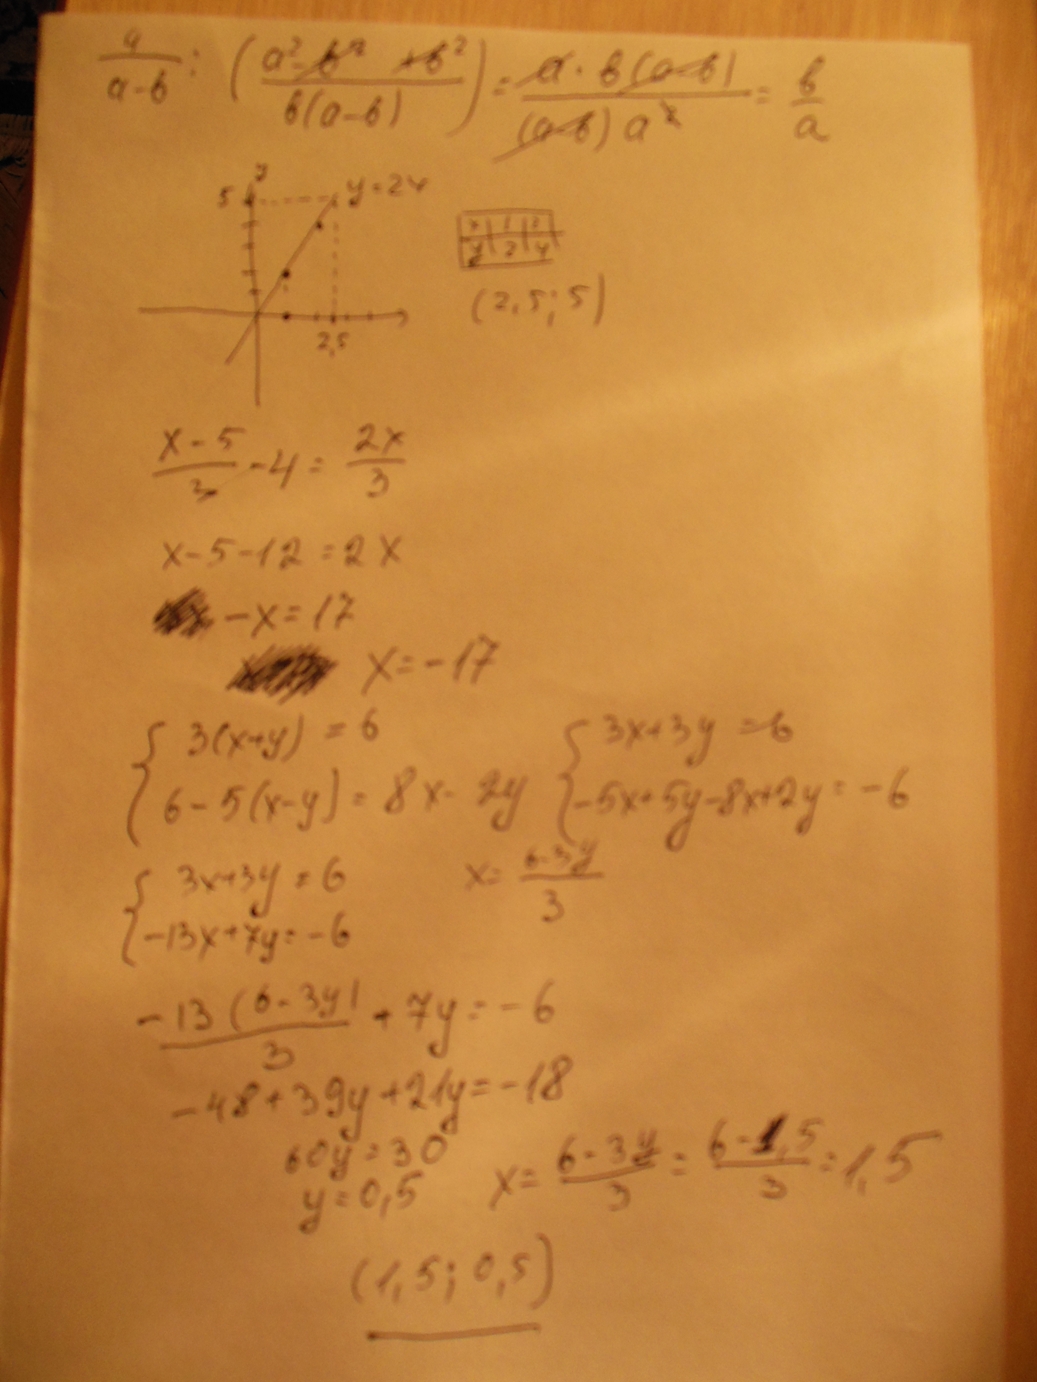 a/(a-b) : ((a²-b²+b²)/(b(a-b))) = (a·b(a-b))/((a-b)a²) = b/a
y
5 y=2x
x | 1 | 2
y | 2 | 4
(2,5; 5)
2,5
(x-5)/3 -4 = 2x/3
x-5-12=2x
-x=17
x=-17
{ 3(x+y)=6 { 3x+3y=6
{ 6-5(x-y)=8x-2y { -5x+5y-8x+2y=-6
{ 3x+3y=6 x=(6-3y)/3
{ -13x+7y=-6
-13(6-3y)/3 + 7y=-6
-48+39y+21y=-18
60y=30
y=0,5 x=(6-3y)/3=(6-1,5)/3=1,5
(1,5; 0,5)